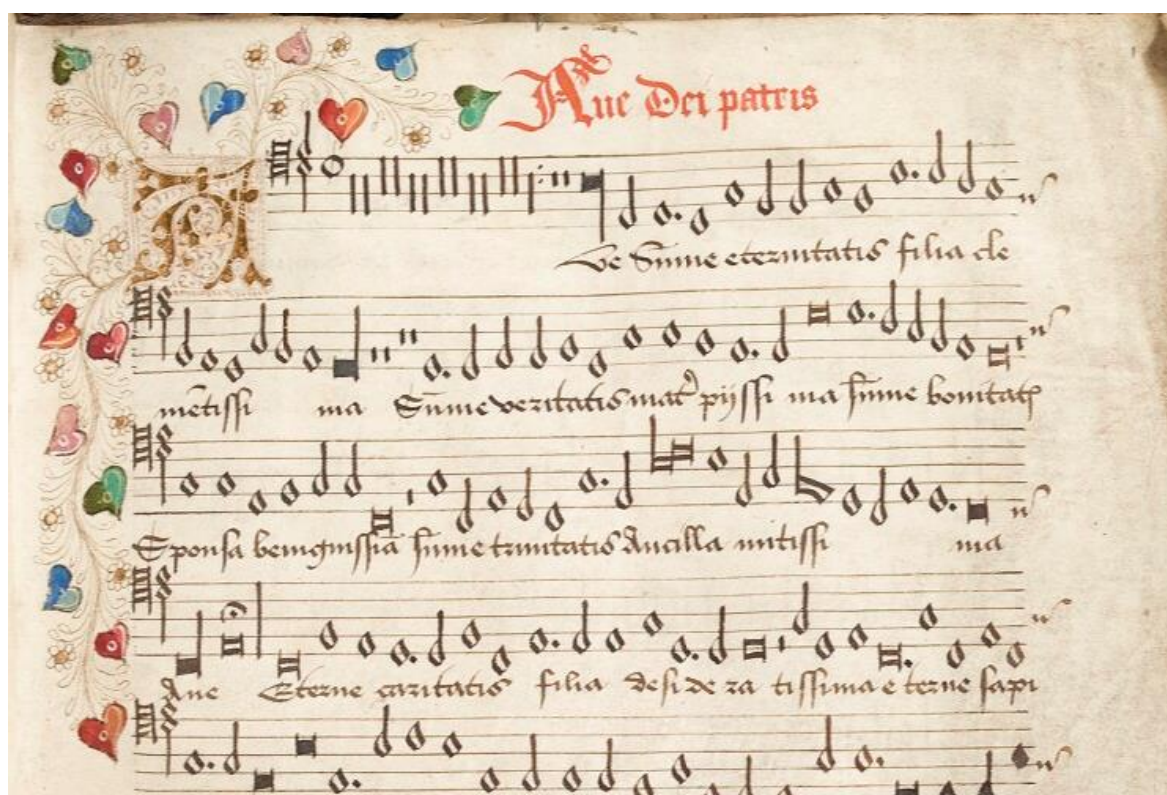 Aue Dei patris
Ve Sūme eternitatis filia cle
mētissi ma Sūme veritatis mat᷑ pijssi ma sūme bonitatꝭ
Sponsa benignissiā sūme trinitatis Ancilla mitissi ma
Aue Eterne caritatis filia desi de ra tissima e terne sapi